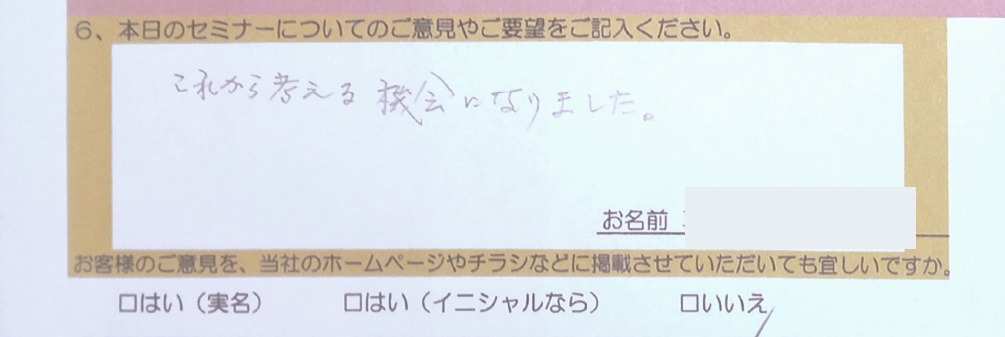 6、本日のセミナーについてのご意見やご要望をご記入ください。
これから考える機会になりました。
お名前
お客様のご意見を、当社のホームページやチラシなどに掲載させていただいても宜しいですか。
□はい（実名） □はい（イニシャルなら） □いいえ